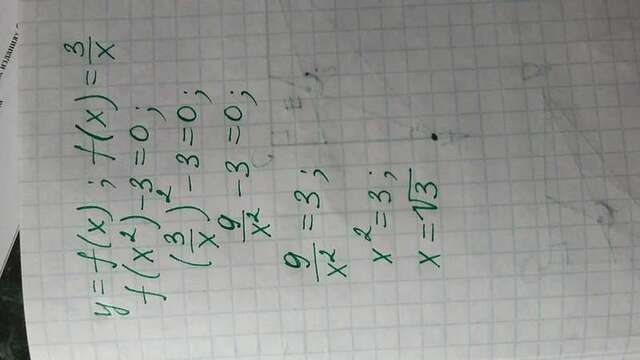 изданиях
y = f(x) ; f(x) = 3/x
f(x²) - 3 = 0 ;
(3/x)² - 3 = 0 ;
9/x² - 3 = 0 ;
9/x² = 3 ;
x² = 3 ;
x = √3 .